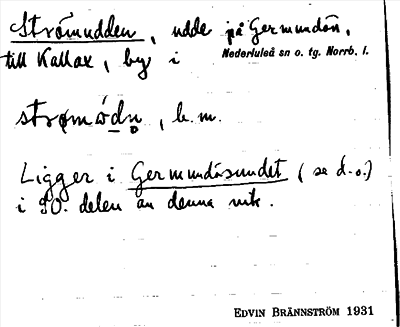 Strömudden, udde på Germundön,
till Kallax, by i Nederluleå sn o. tg. Norrb. l.
strømødn̥, b.m.
Ligger i Germundösundet (se d.o.)
i SO. delen av denna vik.
EDVIN BRÄNNSTRÖM 1931